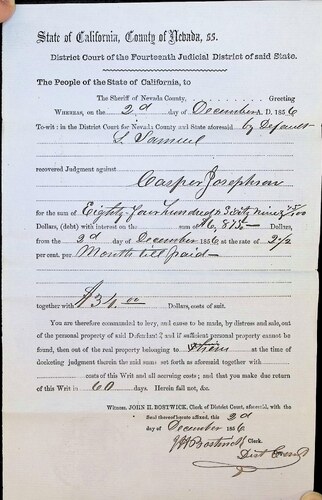 State of California, County of Nevada, ss.
District Court of the Fourteenth Judicial District of said State.
The People of the State of California, to
The Sheriff of Nevada County, Greeting
Whereas, on the 2d day of December A. D. 1856
To-wit: in the District Court for Nevada County and State aforesaid by Default
L. Samuel
recovered Judgment against
Casper Josephson
for the sum of Eighty four hundred & Sixty Nine 75/100
Dollars, (debt) with interest on the sum of $6,815 Dollars,
from the 2d day of December 1856 at the rate of 2 1/2
per cent. per Month till paid
together with $31.00 Dollars, costs of suit.
You are therefore commanded to levy, and cause to be made, by distress and sale, out
of the personal property of said Defendant; and if sufficient personal property cannot be
found, then out of the real property belonging to them at the time of
docketing judgment therein the said sums set forth as aforesaid together with
costs of this Writ and all accruing costs; and that you make due return
of this Writ in 60 days. Herein fail not, &c.
Witness, JOHN H. BOSTWICK, Clerk of District Court, aforesaid, with the
Seal thereof hereto affixed, this 2d
day of December 1856
J H Bostwick Clerk.
Dist Court